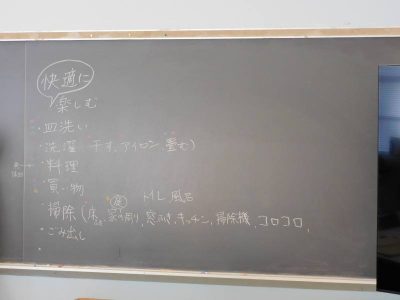 快適に
楽しむ
・皿洗い
・洗濯 干す、アイロン、畳む)
・料理
・買い物
庭 ML 風呂
・掃除(床、家の周り、窓ふき、キッチン、掃除機、コロコロ、
・ごみ出し
・